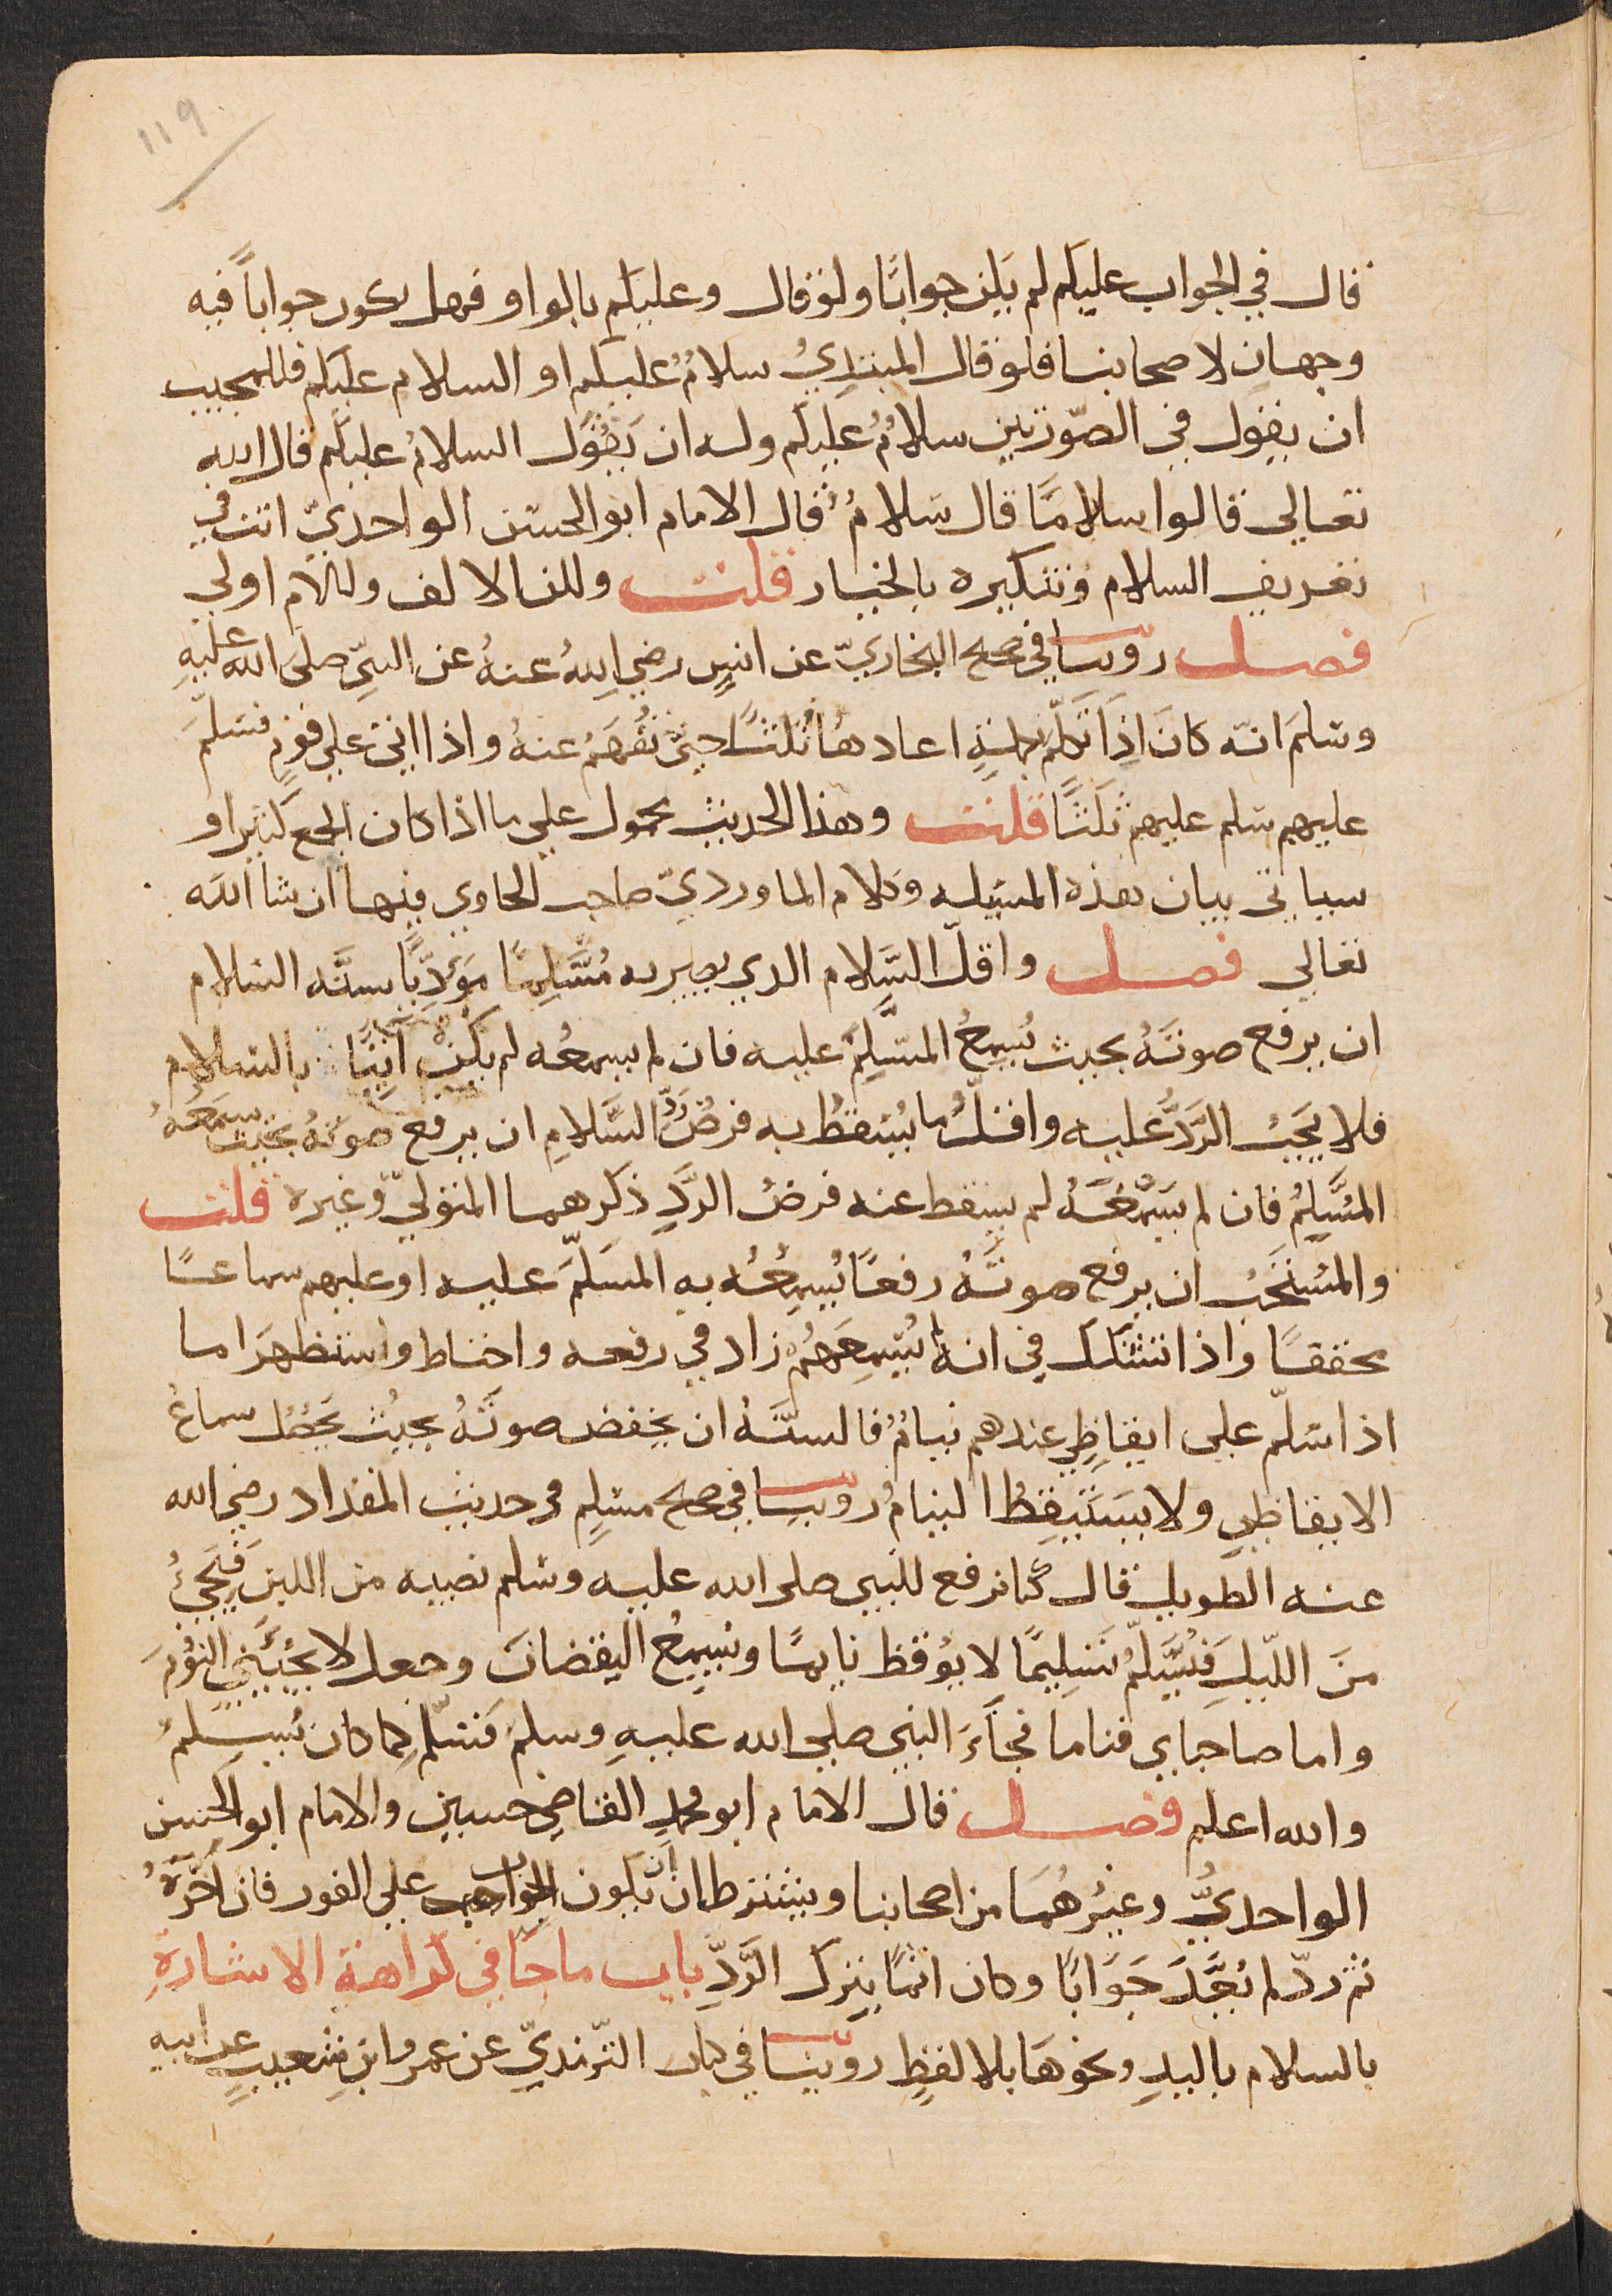 ١١٩
قال في الجواب عليكم لم يكن جوابًا ولو قال وعليكم بالواو فهل يكون جوابًا فيه
وجهان لاصحابنا فلو قال المبتدئ سلامٌ عليكم او السلام عليكم فللمجيب
ان يقول في الصّورتين سلامٌ عليكم وله ان يَقول السلامُ عليكم قال الله
تعالى قالوا سلامًا قال سَلامٌ قال الامام ابو الحسن الواحديّ انت في
تعريف السلام وتنكيره بالخيار قلت ولكن الالف واللام اولى
فصل روينا في صحيح البخاريّ عن انسٍ رضي اللهُ عنهُ عن النبيّ صلى الله عليهِ
وسَلمَ انّه كانَ اِذَا تَكلّم بكلمةٍ اعادهُا ثلثًا حتى تُفهَمَ عنهُ واذا اتى على قومٍ فسَلّمَ
عليهم سَلم عليهم ثَلثًا قلت وهذا الحديث محمول على ما اذا كان الجمع كثيرا و
سياتي بيان هذه المسئله وكلام الماورديّ صاحب الحاوي فيها ان شا الله
تعالى فصل واقلّ السَّلام الذي يصير به مُسَّلِمًا مؤدِّيًا سنَّه السَلام
ان يرفع صوتَهُ بحيث يُسمِعُ المسَلَّمَ عليه فان لم يسمعُه لم يكن آتيًا بالسَلام
فلا يَجبُ الرَّدُّ عليه واقلُّ ما يُسقطُ به فرضُ رَدِّ السَّلامِ ان يرفع صوتهُ بحيث سمعَهُ
المُسَّلِمُ فان لم يَسمَعَهُ لم يسقط عنه فرضُ الردِّ ذكرهما المتوليّ وغيره قلت
والمُستحَبُ ان يرفع صوتَهُ رفعًا يُسمِعُه به المسَلّمَ عليه او عليهم سماعًا
محققًا واذا تشكك في انه يُسمِعَهُم زاد في رفعه واحتاط واستظهَر اما
اذا سَلّم على ايقاظٍ عندهم نيامٌ فالسنّهُ ان يخفض صوتَهُ بحيثُ يَحصُل سماعُ
الايقاظِ ولا يَستَيقِظُ النيامُ روينا في صحيح مسَلم في حديث المقداد رضي الله
عنه الطويل قال كُنا نرفع للنبي صلى الله عليه وسَلم نصيبه من اللبن فيَجيُ
منَ اللّيلِ فيُسَّلّمُ تَسلِيمًا لا يُوقظ نايمًا ويُسمِعُ اليقضانَ وجعل لا يَجُيئنِي النَّومُ
واما صاحباي فناما فجَاءَ النبي صلى الله عليهِ وسلمَ فسَلّم كما كان يُسلِّمُ
والله اعلم فصل قال الامام ابو محمد القاضي حسين والامام ابو الحسن
الواحديُّ وغيرُهُما من اصحابنا ويشترط ان يكون الجواب على الفور فان اخّرَهُ
ثم ردّ لم يُعَدَّ جَوَابًا وكان اثمًا بتركِ الرَّدِّ باب ما جا في كراهة الاشارةِ
بالسلام باليدِ ونحوها بلا لفظٍ روينا في كتاب الترمذيّ عن عمرو ابن شعيبٍ عن ابيهِ